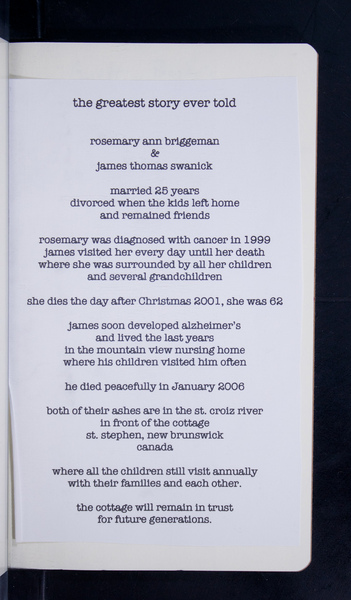 the greatest story ever told
rosemary ann briggeman
&
james thomas swanick
married 25 years
divorced when the kids left home
and remained friends
rosemary was diagnosed with cancer in 1999
james visited her every day until her death
where she was surrounded by all her children
and several grandchildren
she dies the day after Christmas 2001, she was 62
james soon developed alzheimer's
and lived the last years
in the mountain view nursing home
where his children visited him often
he died peacefully in January 2006
both of their ashes are in the st. croiz river
in front of the cottage
st. stephen, new brunswick
canada
where all the children still visit annually
with their families and each other.
the cottage will remain in trust
for future generations.